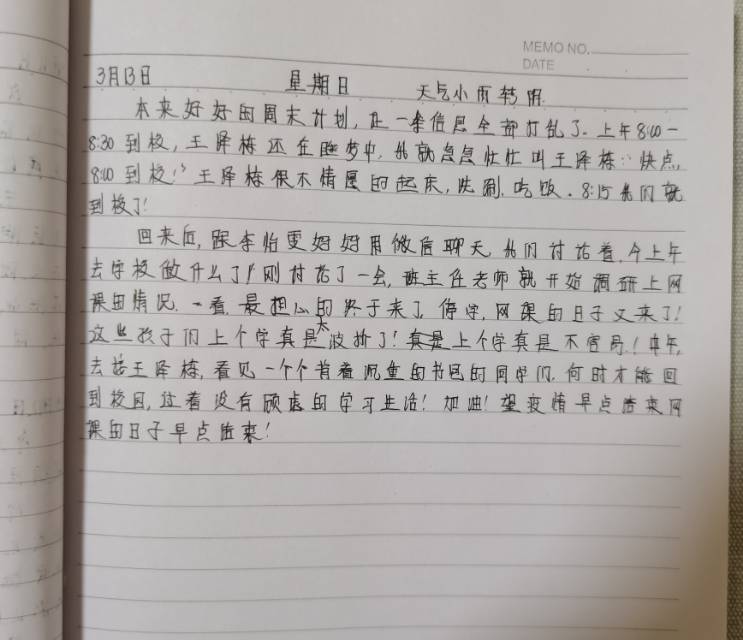 MEMO NO.
DATE
3月13日 星期日 天气小雨转阴
本来好好的周末计划,让一条信息全部打乱了.上午8:00-
8:30到校,王泽栋还在睡梦中,我就急急忙忙叫王泽栋:"快点,
8:00到校!"王泽栋很不情愿的起床,洗漱,吃饭.8:15我们就
到校了!
回来后,跟李怡雯妈妈用微信聊天,我们讨论着,今上午
去学校做什么了!刚讨论了一会,班主任老师就开始调研上网
课的情况.一看,最担心的终于来了,停学,网课的日子又来了!
这些孩子们上个学真是太波折了!真是上个学真是不容易!中午,
去接王泽栋,看见一个个背着沉重的书包的同学们.何时才能回
到校园,过着没有顾虑的学习生活!加油!望疫情早点结束网
课的日子早点结束!